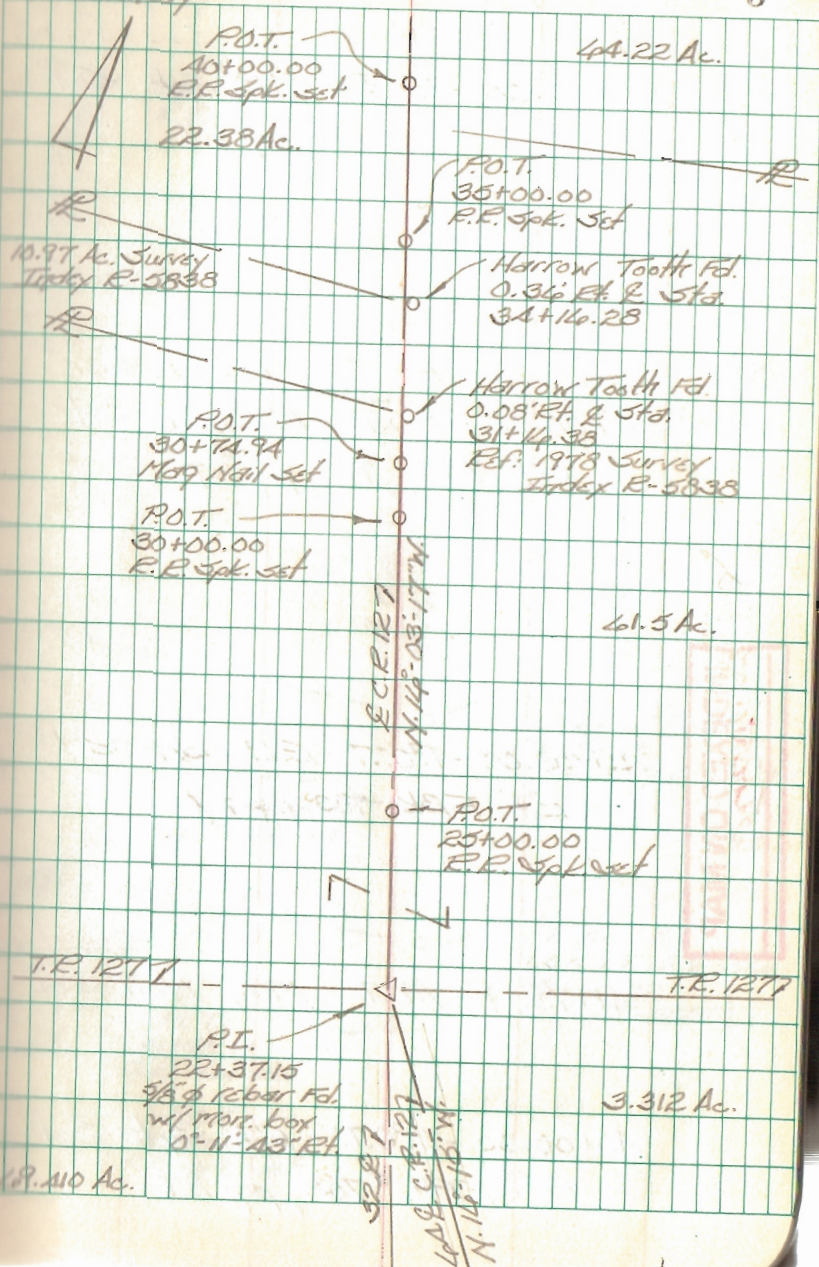 P.O.T.
40+00.00
R.R. Spk. Set
64.22 Ac.
22.38 Ac.
P.O.T.
35+00.00
R.R. Spk. Set
PL
PL
10.97 Ac. Survey
Index R-5838
Harrow Tooth Fd.
0.36' Rt. ℄ Sta.
34+16.28
PL
Harrow Tooth Fd.
0.08' Rt. ℄ Sta.
31+16.38
Ref: 1978 Survey
Index R-5838
P.O.T.
30+74.94
Mag Nail Set
P.O.T.
30+00.00
R.R. Spk. Set
℄ C.R. 127
N. 16°-03'-17" W.
61.5 Ac.
P.O.T.
25+00.00
R.R. Spk Set
T.R. 1277
T.R. 1277
P.I.
22+37.15
5/8" φ rebar Fd.
w/ mon. box
0°-11'-43" Rt.
3.312 Ac.
℄ C.R. 127
N. 16°-15' W.
Ac.